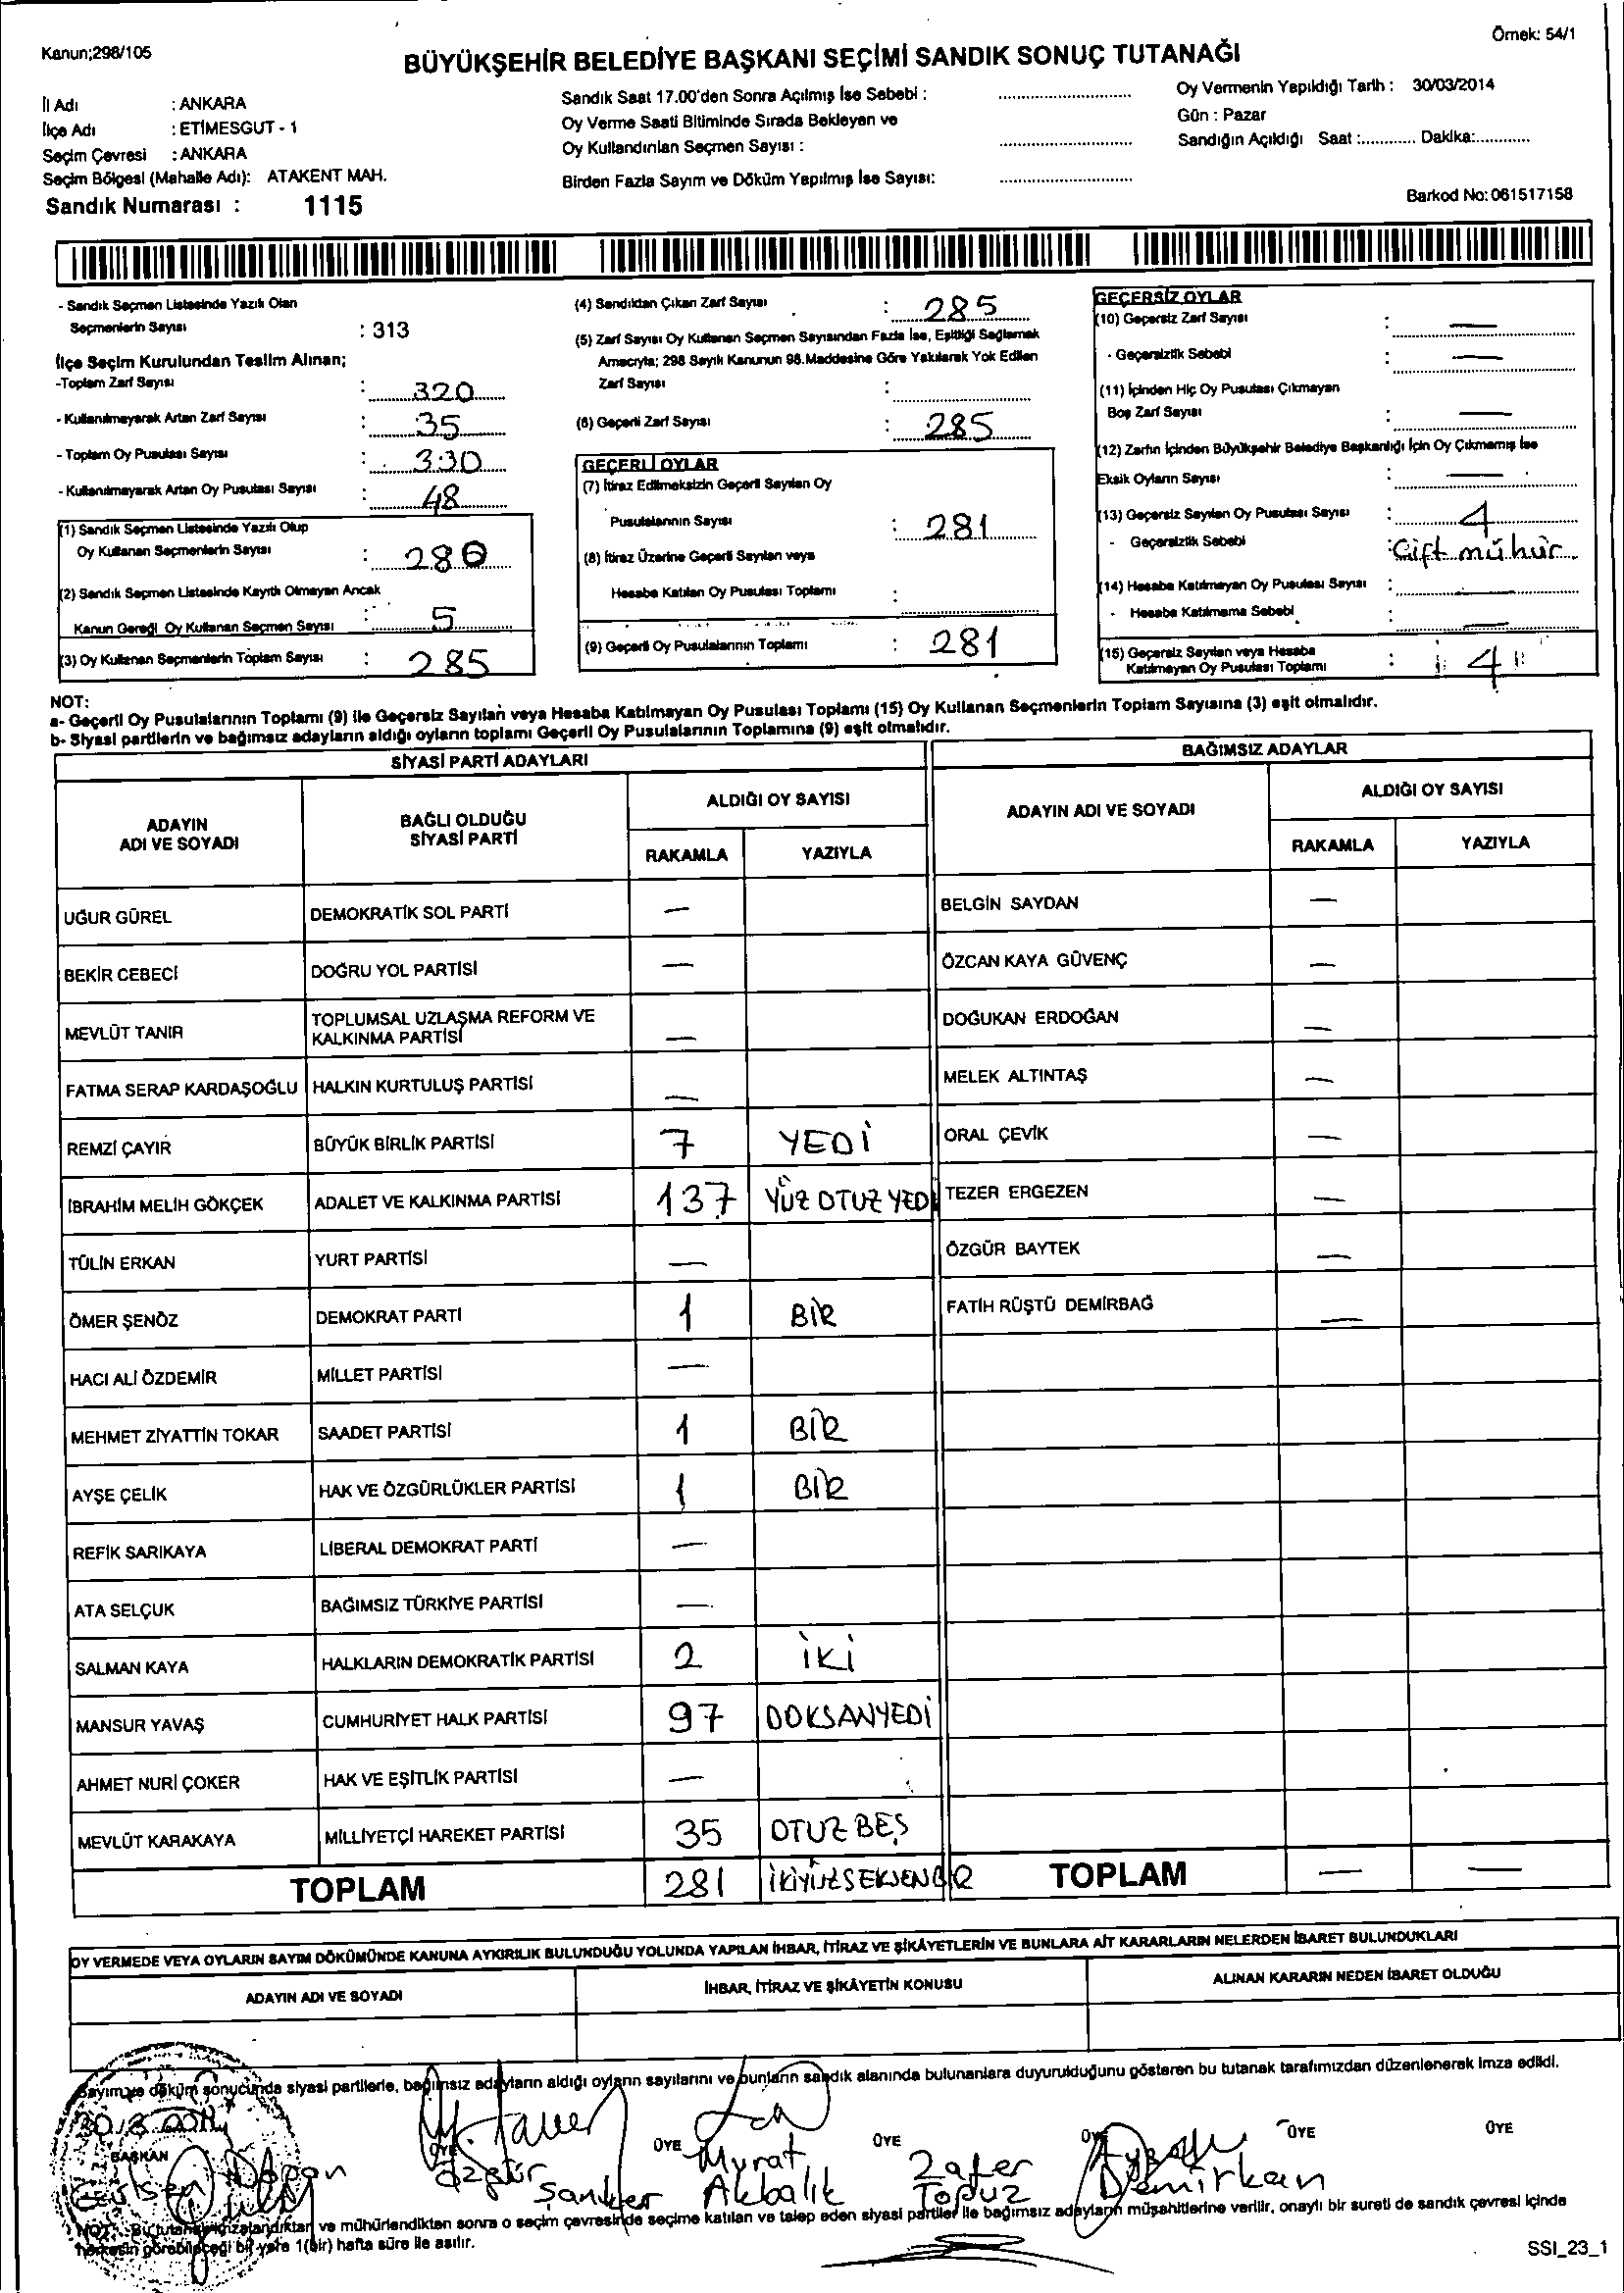 Kanun;298/105
Örnek: 54/1
BÜYÜKŞEHİR BELEDİYE BAŞKANI SEÇİMİ SANDIK SONUÇ TUTANAĞI
İl Adı : ANKARA
İlçe Adı : ETİMESGUT - 1
Seçim Çevresi : ANKARA
Seçim Bölgesi (Mahalle Adı): ATAKENT MAH.
Sandık Numarası : 1115
Sandık Saat 17.00'den Sonra Açılmış İse Sebebi :
Oy Verme Saati Bitiminde Sırada Bekleyen ve
Oy Kullandırılan Seçmen Sayısı :
Birden Fazla Sayım ve Döküm Yapılmış İse Sayısı:
Oy Vermenin Yapıldığı Tarih : 30/03/2014
Gün : Pazar
Sandığın Açıldığı Saat :............ Dakika:............
Barkod No: 061517158
- Sandık Seçmen Listesinde Yazılı Olan
Seçmenlerin Sayısı : 313
İlçe Seçim Kurulundan Teslim Alınan;
-Toplam Zarf Sayısı : 320
- Kullanılmayarak Artan Zarf Sayısı : 35
- Toplam Oy Pusulası Sayısı : 330
- Kullanılmayarak Artan Oy Pusulası Sayısı : 48
(1) Sandık Seçmen Listesinde Yazılı Olup
Oy Kullanan Seçmenlerin Sayısı : 280
(2) Sandık Seçmen Listesinde Kayıtlı Olmayan Ancak
Kanun Gereği Oy Kullanan Seçmen Sayısı : 5
(3) Oy Kullanan Seçmenlerin Toplam Sayısı : 285
(4) Sandıktan Çıkan Zarf Sayısı : 285
(5) Zarf Sayısı Oy Kullanan Seçmen Sayısından Fazla İse, Eşitliği Sağlamak
Amacıyla; 298 Sayılı Kanunun 98.Maddesine Göre Yakılarak Yok Edilen
Zarf Sayısı :
(6) Geçerli Zarf Sayısı : 285
GEÇERLİ OYLAR
(7) İtiraz Edilmeksizin Geçerli Sayılan Oy
Pusulalarının Sayısı : 281
(8) İtiraz Üzerine Geçerli Sayılan veya
Hesaba Katılan Oy Pusulası Toplamı :
(9) Geçerli Oy Pusulalarının Toplamı : 281
GEÇERSİZ OYLAR
(10) Geçersiz Zarf Sayısı : —
- Geçersizlik Sebebi : —
(11) İçinden Hiç Oy Pusulası Çıkmayan
Boş Zarf Sayısı : —
(12) Zarfın İçinden Büyükşehir Belediye Başkanlığı İçin Oy Çıkmamış İse
Eksik Oyların Sayısı : —
(13) Geçersiz Sayılan Oy Pusulası Sayısı : 4
- Geçersizlik Sebebi : Çift mühür
(14) Hesaba Katılmayan Oy Pusulası Sayısı : —
- Hesaba Katılmama Sebebi : —
(15) Geçersiz Sayılan veya Hesaba
Katılmayan Oy Pusulası Toplamı : 4
NOT:
a- Geçerli Oy Pusulalarının Toplamı (9) ile Geçersiz Sayılan veya Hesaba Katılmayan Oy Pusulası Toplamı (15) Oy Kullanan Seçmenlerin Toplam Sayısına (3) eşit olmalıdır.
b- Siyasi partilerin ve bağımsız adayların aldığı oyların toplamı Geçerli Oy Pusulalarının Toplamına (9) eşit olmalıdır.
SİYASİ PARTİ ADAYLARI
BAĞIMSIZ ADAYLAR
ADAYIN
ADI VE SOYADI
BAĞLI OLDUĞU
SİYASİ PARTİ
ALDIĞI OY SAYISI
RAKAMLA YAZIYLA
ADAYIN ADI VE SOYADI
ALDIĞI OY SAYISI
RAKAMLA YAZIYLA
UĞUR GÜREL DEMOKRATİK SOL PARTİ — BELGİN SAYDAN —
BEKİR CEBECİ DOĞRU YOL PARTİSİ — ÖZCAN KAYA GÜVENÇ —
MEVLÜT TANIR TOPLUMSAL UZLAŞMA REFORM VE
KALKINMA PARTİSİ — DOĞUKAN ERDOĞAN —
FATMA SERAP KARDAŞOĞLU HALKIN KURTULUŞ PARTİSİ — MELEK ALTINTAŞ —
REMZİ ÇAYIR BÜYÜK BİRLİK PARTİSİ 7 YEDİ ORAL ÇEVİK —
İBRAHİM MELİH GÖKÇEK ADALET VE KALKINMA PARTİSİ 137 YÜZ OTUZ YEDİ TEZER ERGEZEN —
TÜLİN ERKAN YURT PARTİSİ — ÖZGÜR BAYTEK —
ÖMER ŞENÖZ DEMOKRAT PARTİ 1 BİR FATİH RÜŞTÜ DEMİRBAĞ —
HACI ALİ ÖZDEMİR MİLLET PARTİSİ —
MEHMET ZİYATTİN TOKAR SAADET PARTİSİ 1 BİR
AYŞE ÇELİK HAK VE ÖZGÜRLÜKLER PARTİSİ 1 BİR
REFİK SARIKAYA LİBERAL DEMOKRAT PARTİ —
ATA SELÇUK BAĞIMSIZ TÜRKİYE PARTİSİ —
SALMAN KAYA HALKLARIN DEMOKRATİK PARTİSİ 2 İKİ
MANSUR YAVAŞ CUMHURİYET HALK PARTİSİ 97 DOKSANYEDİ
AHMET NURİ ÇOKER HAK VE EŞİTLİK PARTİSİ —
MEVLÜT KARAKAYA MİLLİYETÇİ HAREKET PARTİSİ 35 OTUZ BEŞ
TOPLAM 281 İKİYÜZSEKSENBİR TOPLAM — —
OY VERMEDE VEYA OYLARIN SAYIM DÖKÜMÜNDE KANUNA AYKIRILIK BULUNDUĞU YOLUNDA YAPILAN İHBAR, İTİRAZ VE ŞİKÂYETLERİN VE BUNLARA AİT KARARLARIN NELERDEN İBARET BULUNDUKLARI
ADAYIN ADI VE SOYADI İHBAR, İTİRAZ VE ŞİKÂYETİN KONUSU ALINAN KARARIN NEDEN İBARET OLDUĞU
Sayım ve döküm sonucunda siyasi partilerle, bağımsız adayların aldığı oyların sayılarını ve bunların sandık alanında bulunanlara duyurulduğunu gösteren bu tutanak tarafımızdan düzenlenerek imza edildi.
BAŞKAN ÜYE ÜYE ÜYE ÜYE ÜYE ÜYE
Doğan Özgür Murat Zafer
Akbalık Topuz Demirkan
NOT: Bu tutanak imzalandıktan ve mühürlendikten sonra o seçim çevresinde seçime katılan ve talep eden siyasi partiler ile bağımsız adayların müşahitlerine verilir, onaylı bir sureti de sandık çevresi içinde
herkesin görebileceği bir yere 1(bir) hafta süre ile asılır.
SSI_23_1